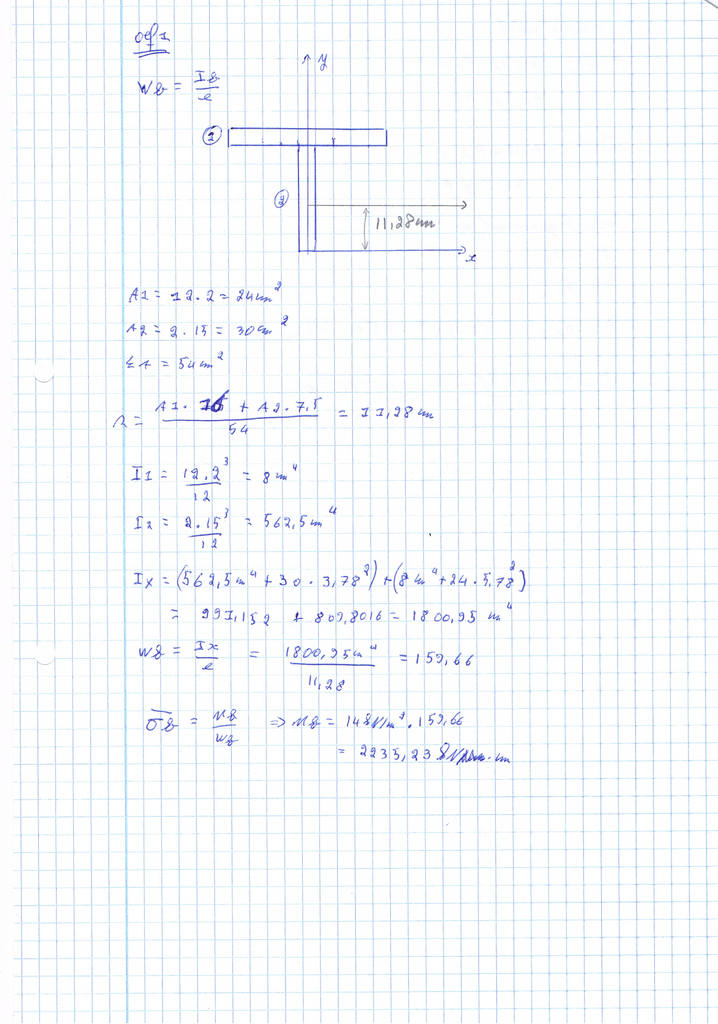 opg 1
Wb = Ib / e
y
1
2
11,28 cm
x
A1 = 12 . 2 = 24 cm²
A2 = 2 . 15 = 30 cm²
ΣA = 54 cm²
= A1 . 16 + A2 . 7,5 / 54 = 11,28 cm
I1 = 12 . 2³ / 12 = 8 cm⁴
I2 = 2 . 15³ / 12 = 562,5 cm⁴
Ix = (562,5 cm⁴ + 30 . 3,78²) + (8 cm⁴ + 24 . 5,78²)
= 991,152 + 809,8016 = 1800,95 cm⁴
Wb = Ix / e = 1800,95 cm⁴ / 11,28 = 159,66
σ̄b = Mb / Wb ⇒ Mb = 14 kN/cm² . 159,66
= 2235,23 cm